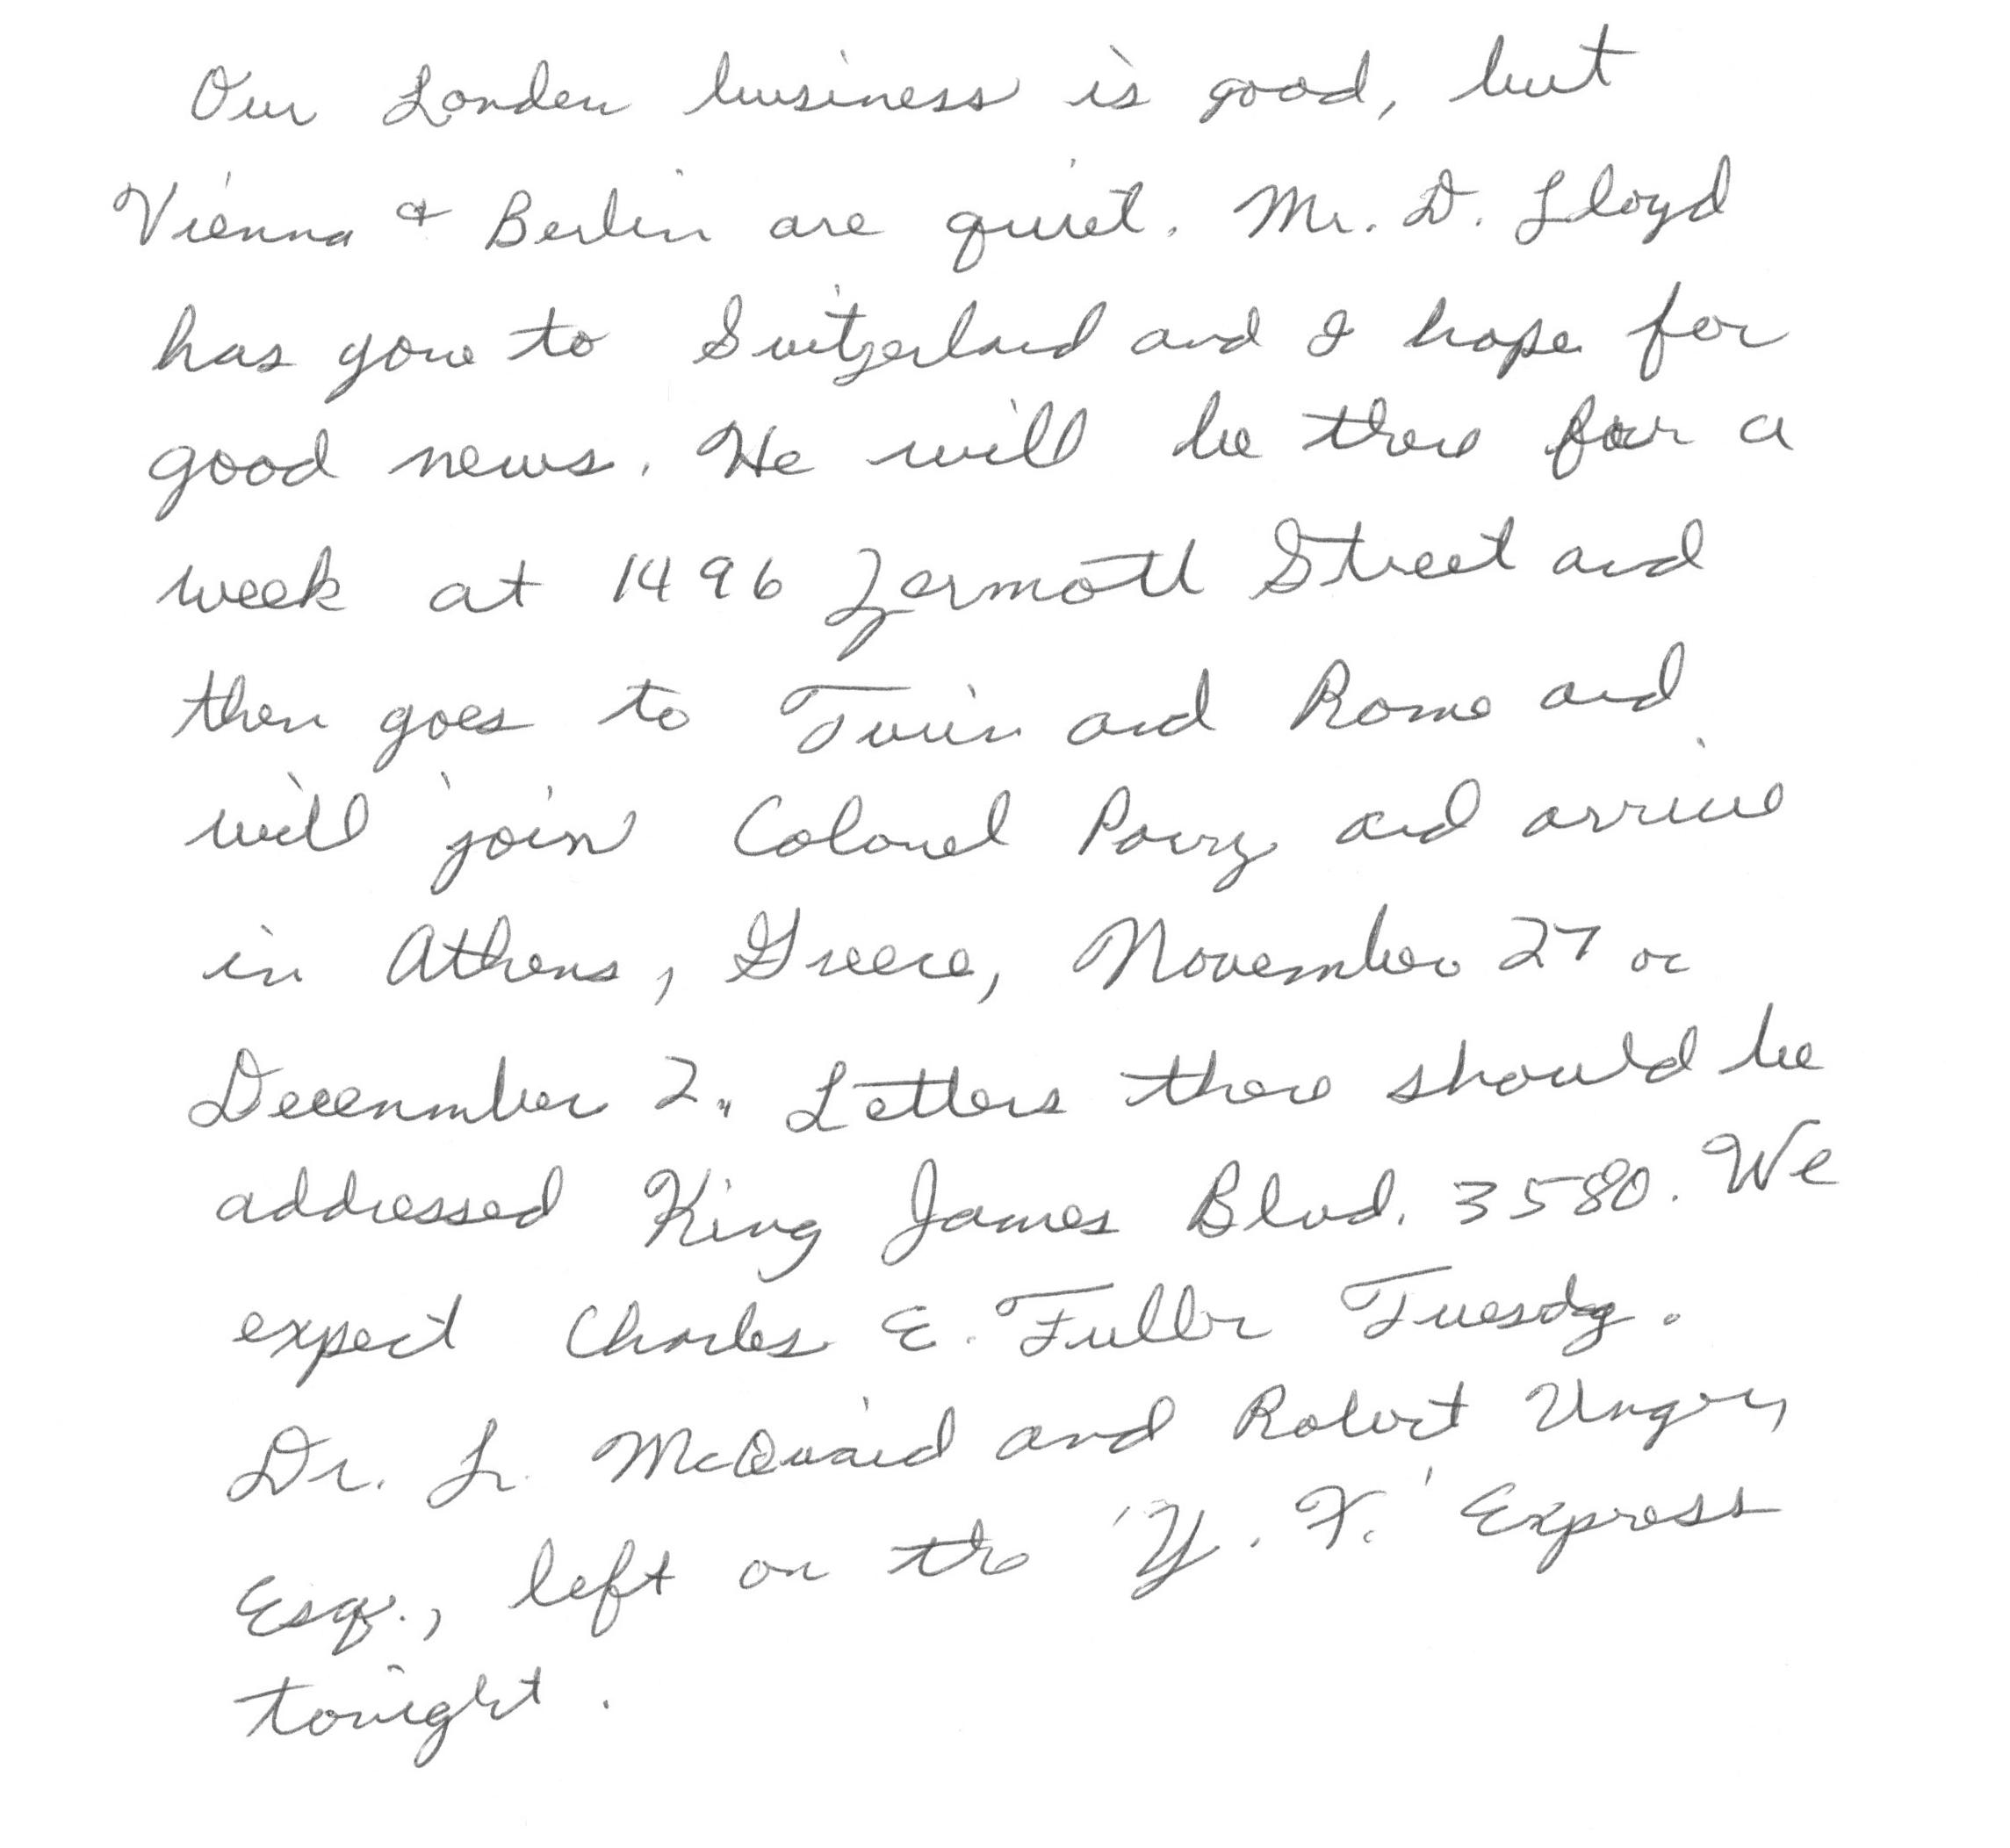 Our London business is good, but
Vienna & Berlin are quiet. Mr. D. Lloyd
has gone to Switzerland and I hope for
good news. He will be there for a
week at 1496 Zermott Street and
then goes to Turin and Rome and
will join Colonel Parry and arrive
in Athens, Greece, November 27 or
December 2. Letters there should be
addressed King James Blvd. 3580. We
expect Charles E. Fuller Tuesday.
Dr. L. McQuaid and Robert Unger,
Esq., left on the 'Y. X.' Express
tonight.